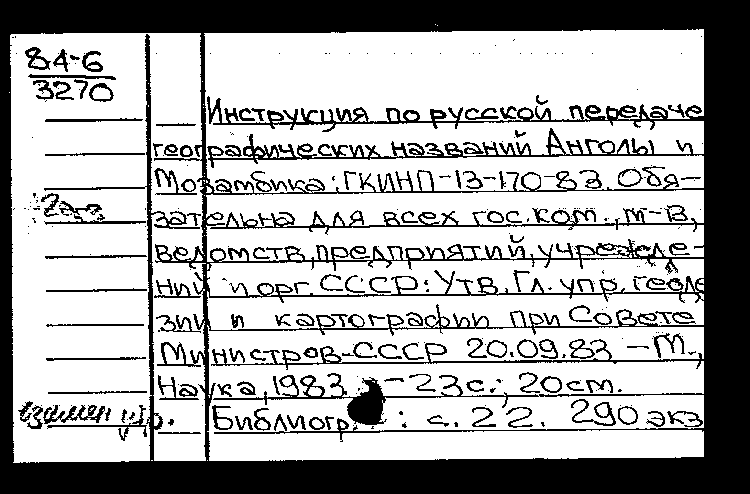 84-6
3270
Инструкция по русской передаче
географических названий Анголы и
Мозамбика: ГКИНП-13-170-83. Обя-
2аэ
зательна для всех гос.ком., м-в,
ведомств, предприятий, учрежде-
ний и орг. СССР: Утв. Гл. упр. геоде
зии и картографии при Совете
Министров СССР 20.09.83. -М.,
Наука, 1983. -23с.; 20см.
взамен утр.
Библиогр.: с.22. 290 экз